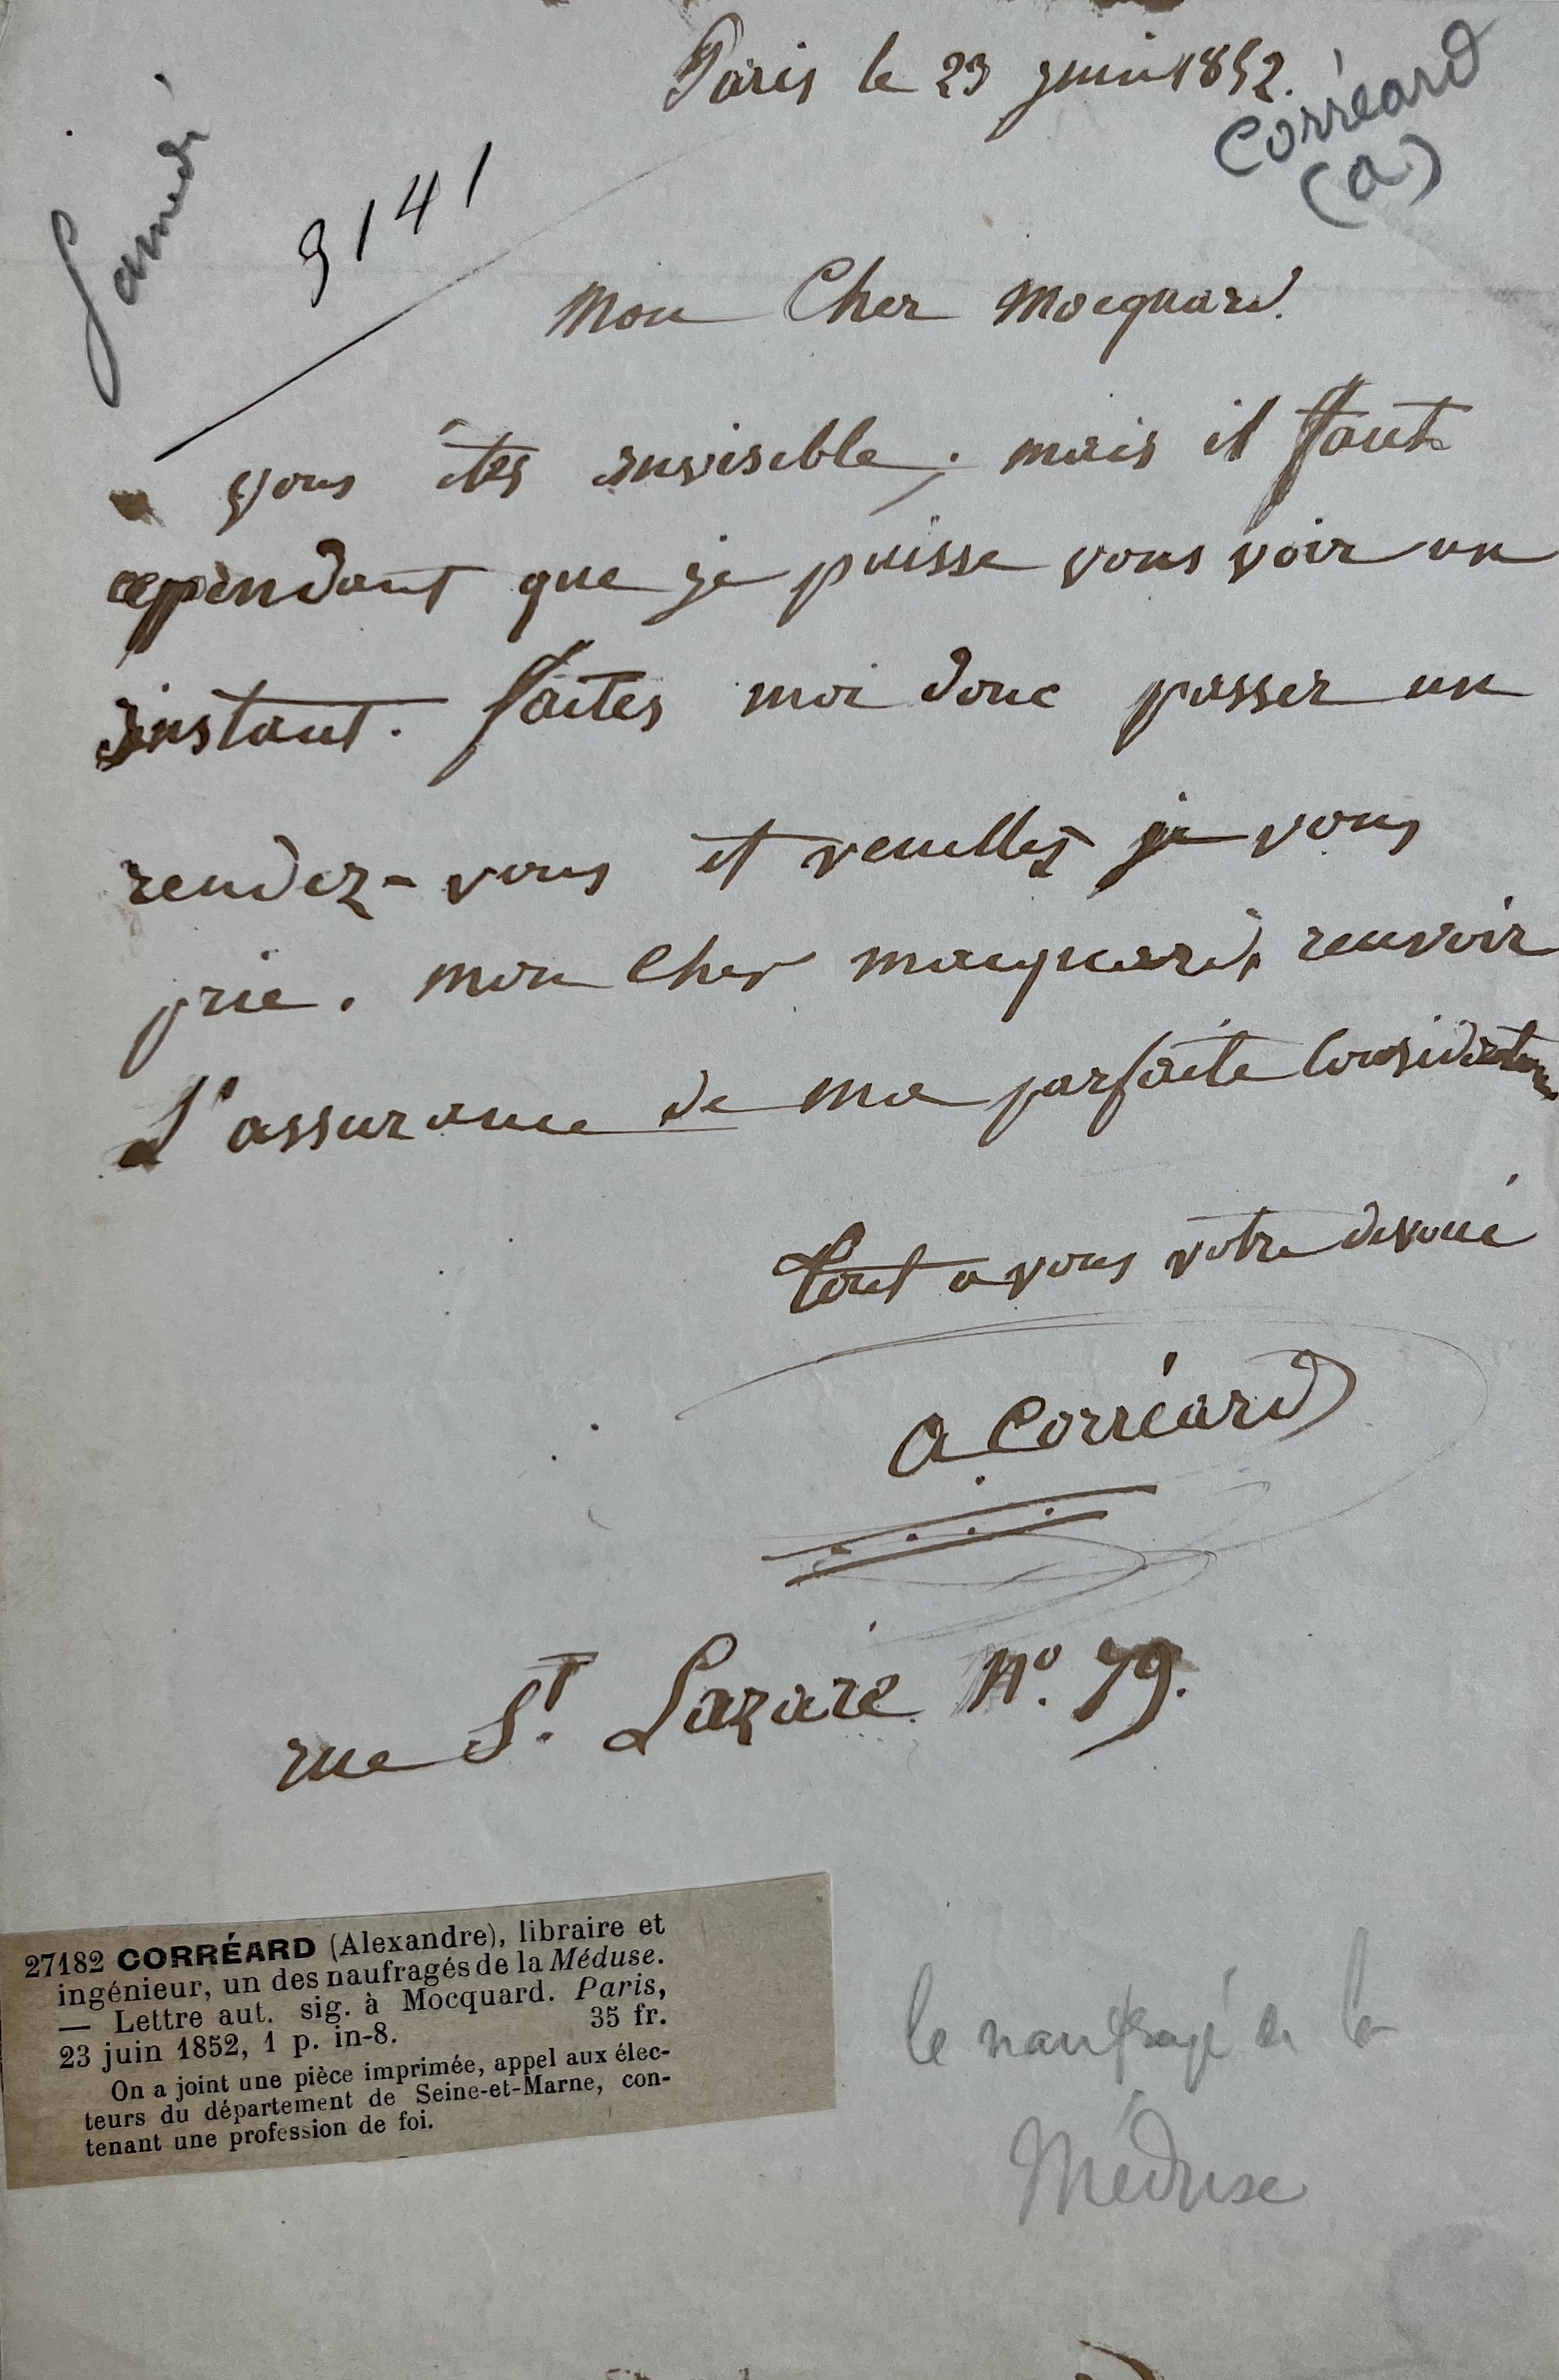 Paris le 23 juin 1852.
Corréard
(A)
Samedi
9141
Mon Cher Mocquard.
vous êtes invisible ; mais il faut
cependant que je puisse vous voir un
instant. faites moi donc passer un
rendez-vous et veuillez je vous
prie. mon cher mocquard, recevoir
L'assurance de ma parfaite Considération
tout a vous votre devoué
A Corréard
rue St. Lazare No. 79.
27182 CORRÉARD (Alexandre), libraire et
ingénieur, un des naufragés de la Méduse.
— Lettre aut. sig. à Mocquard. Paris,
23 juin 1852, 1 p. in-8. 35 fr.
On a joint une pièce imprimée, appel aux élec-
teurs du département de Seine-et-Marne, con-
tenant une profession de foi.
le naufragé de la
Méduse